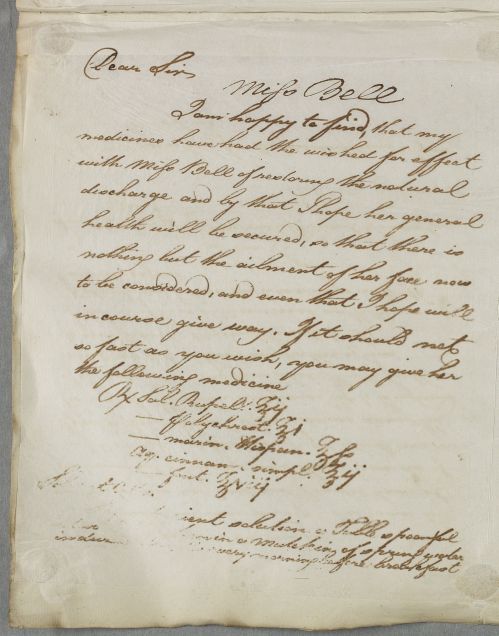 Dear Sir
Miss Bell
I am happy to find, that my
medicines have had the wished for effect
with Miss Bell of restoring the natural
discharge and by that I hope her general
health will be secured, so that there is
nothing but the ailment of her face now
to be considered, and even that I hope will
in course give way. If it should not
so fast as you wish, you may give her
the following medicine
℞ Sal. Rupel. ʒij
— Polychrest. ʒi
— marin. Hispan. ʒß
aq. cinnam. simpl. ʒij
— font. ʒvij
solution a Table spoonful
in a mutchkin of spring water
every morning before breakfast